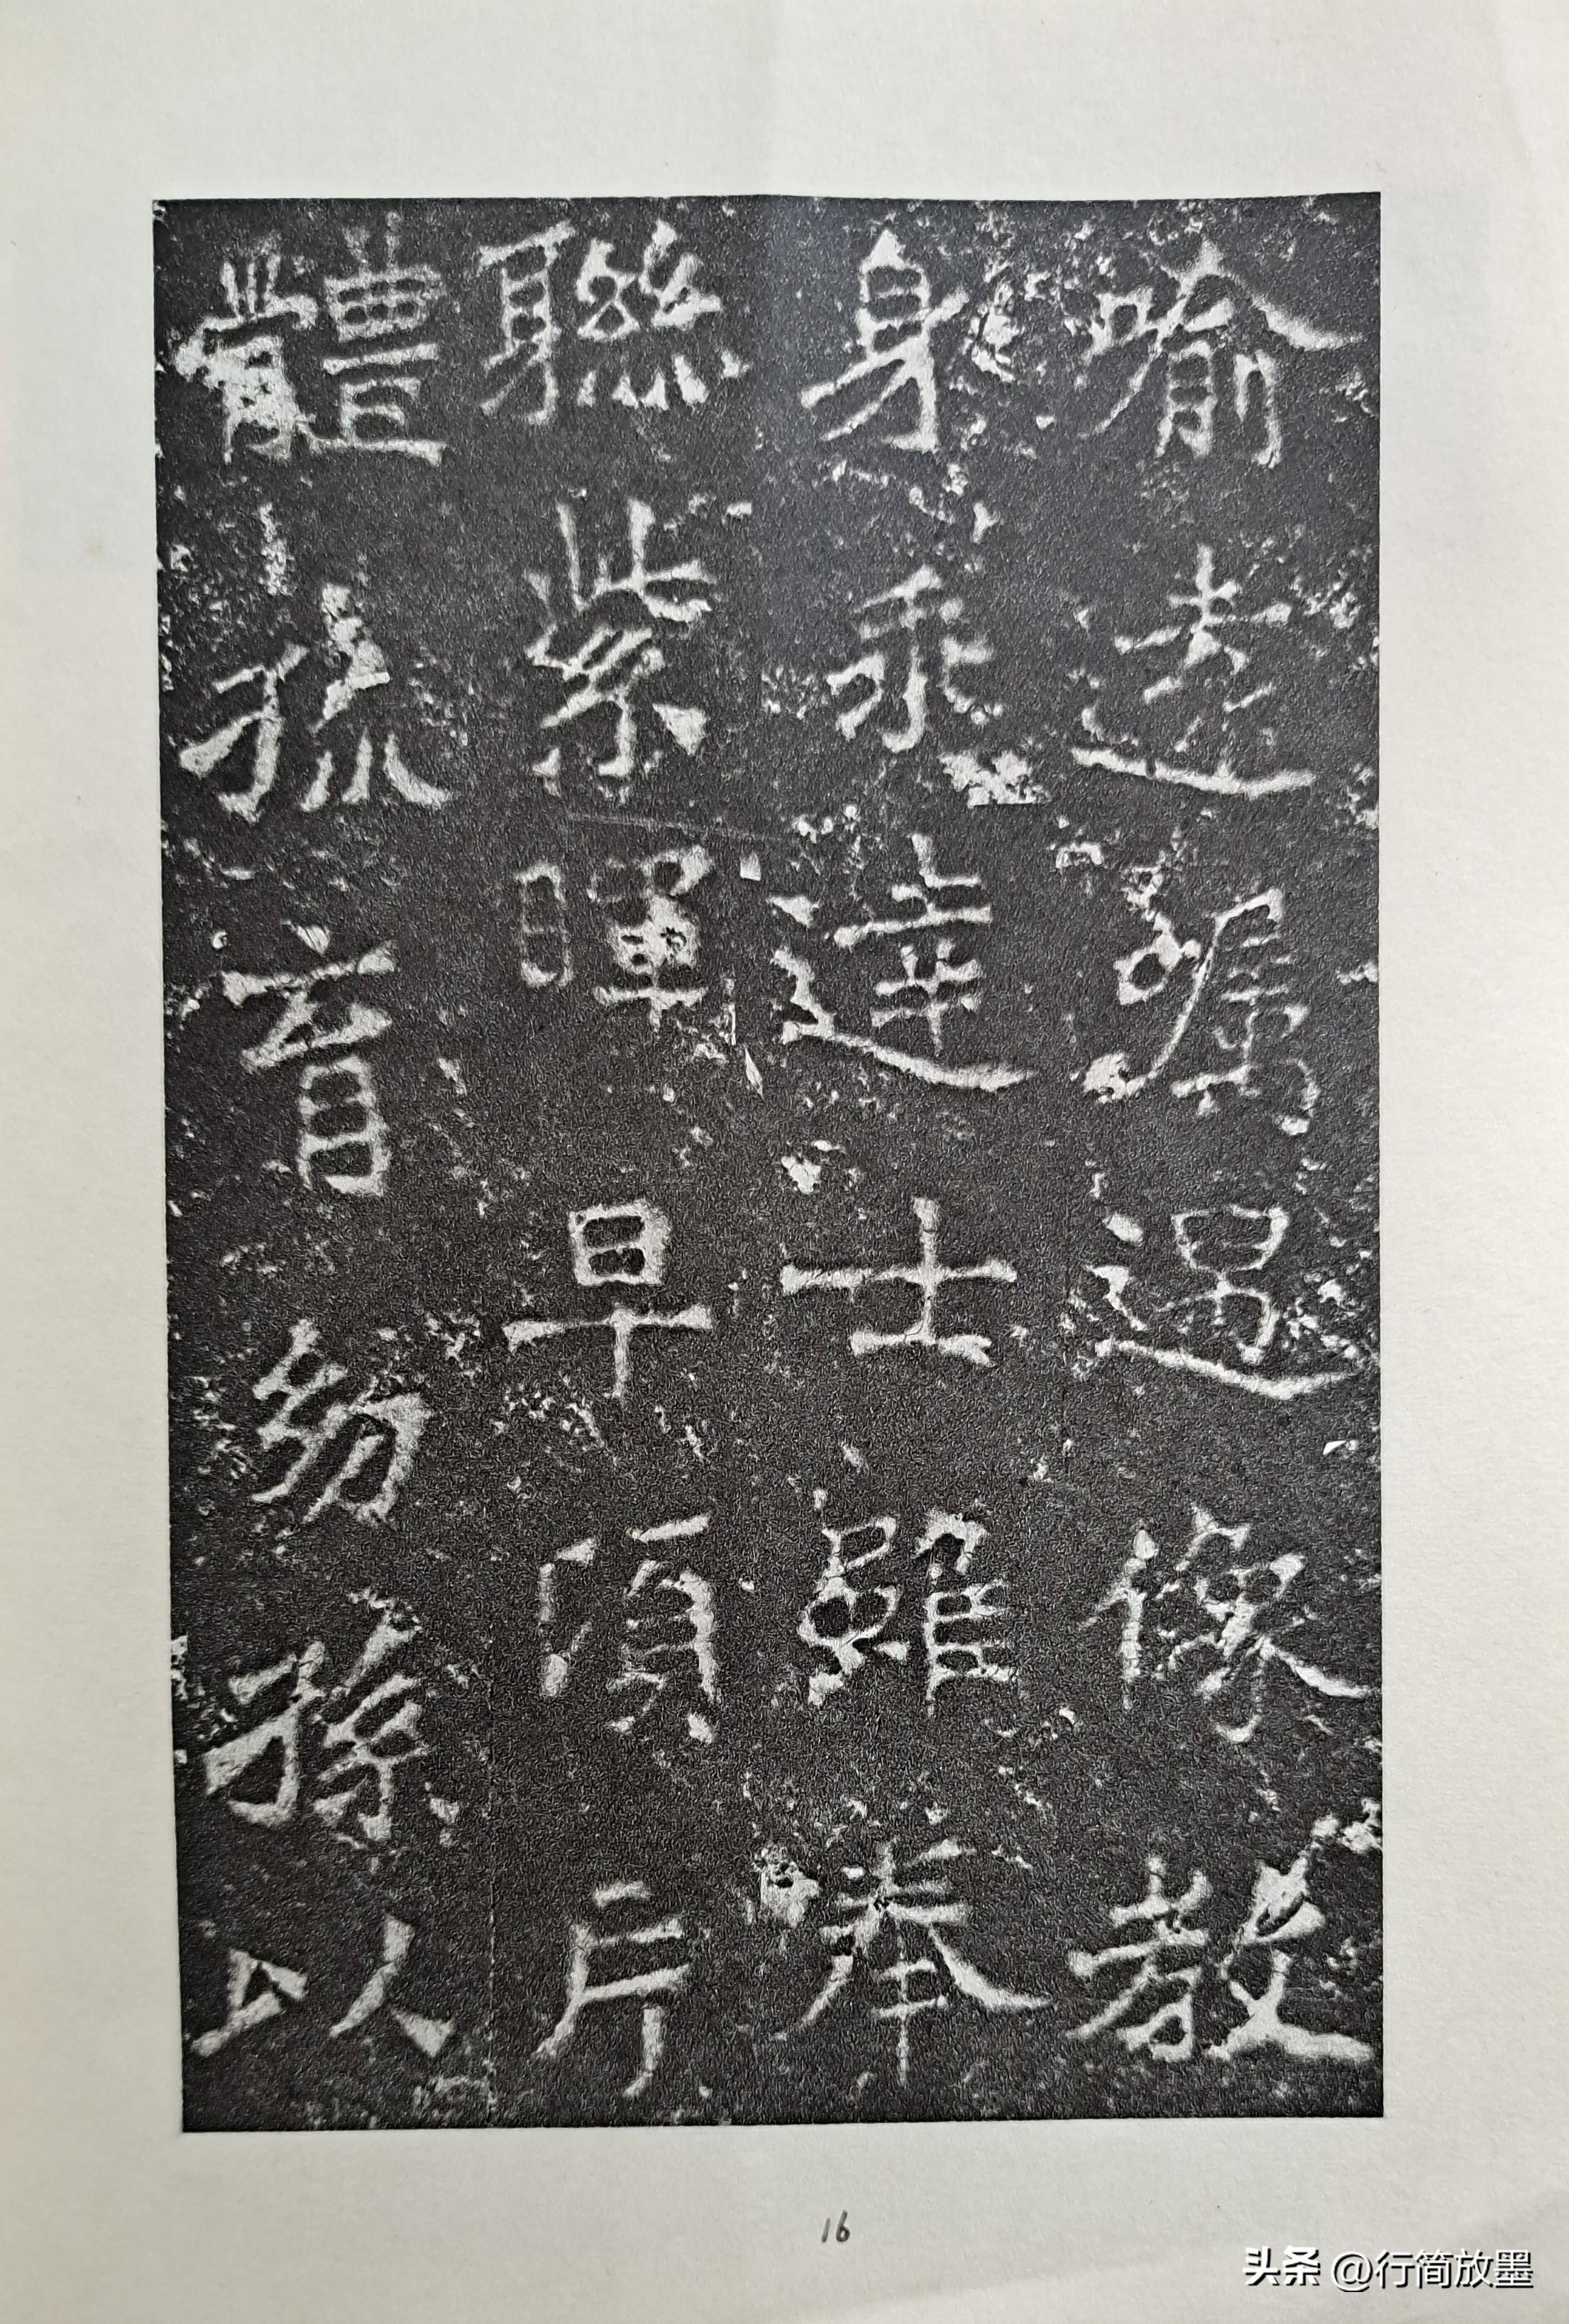 喻遠囑遇像教
身乘達士雖奉
聯紫暉早頃片
體孤育幼孫以
16
头条 @行简放墨